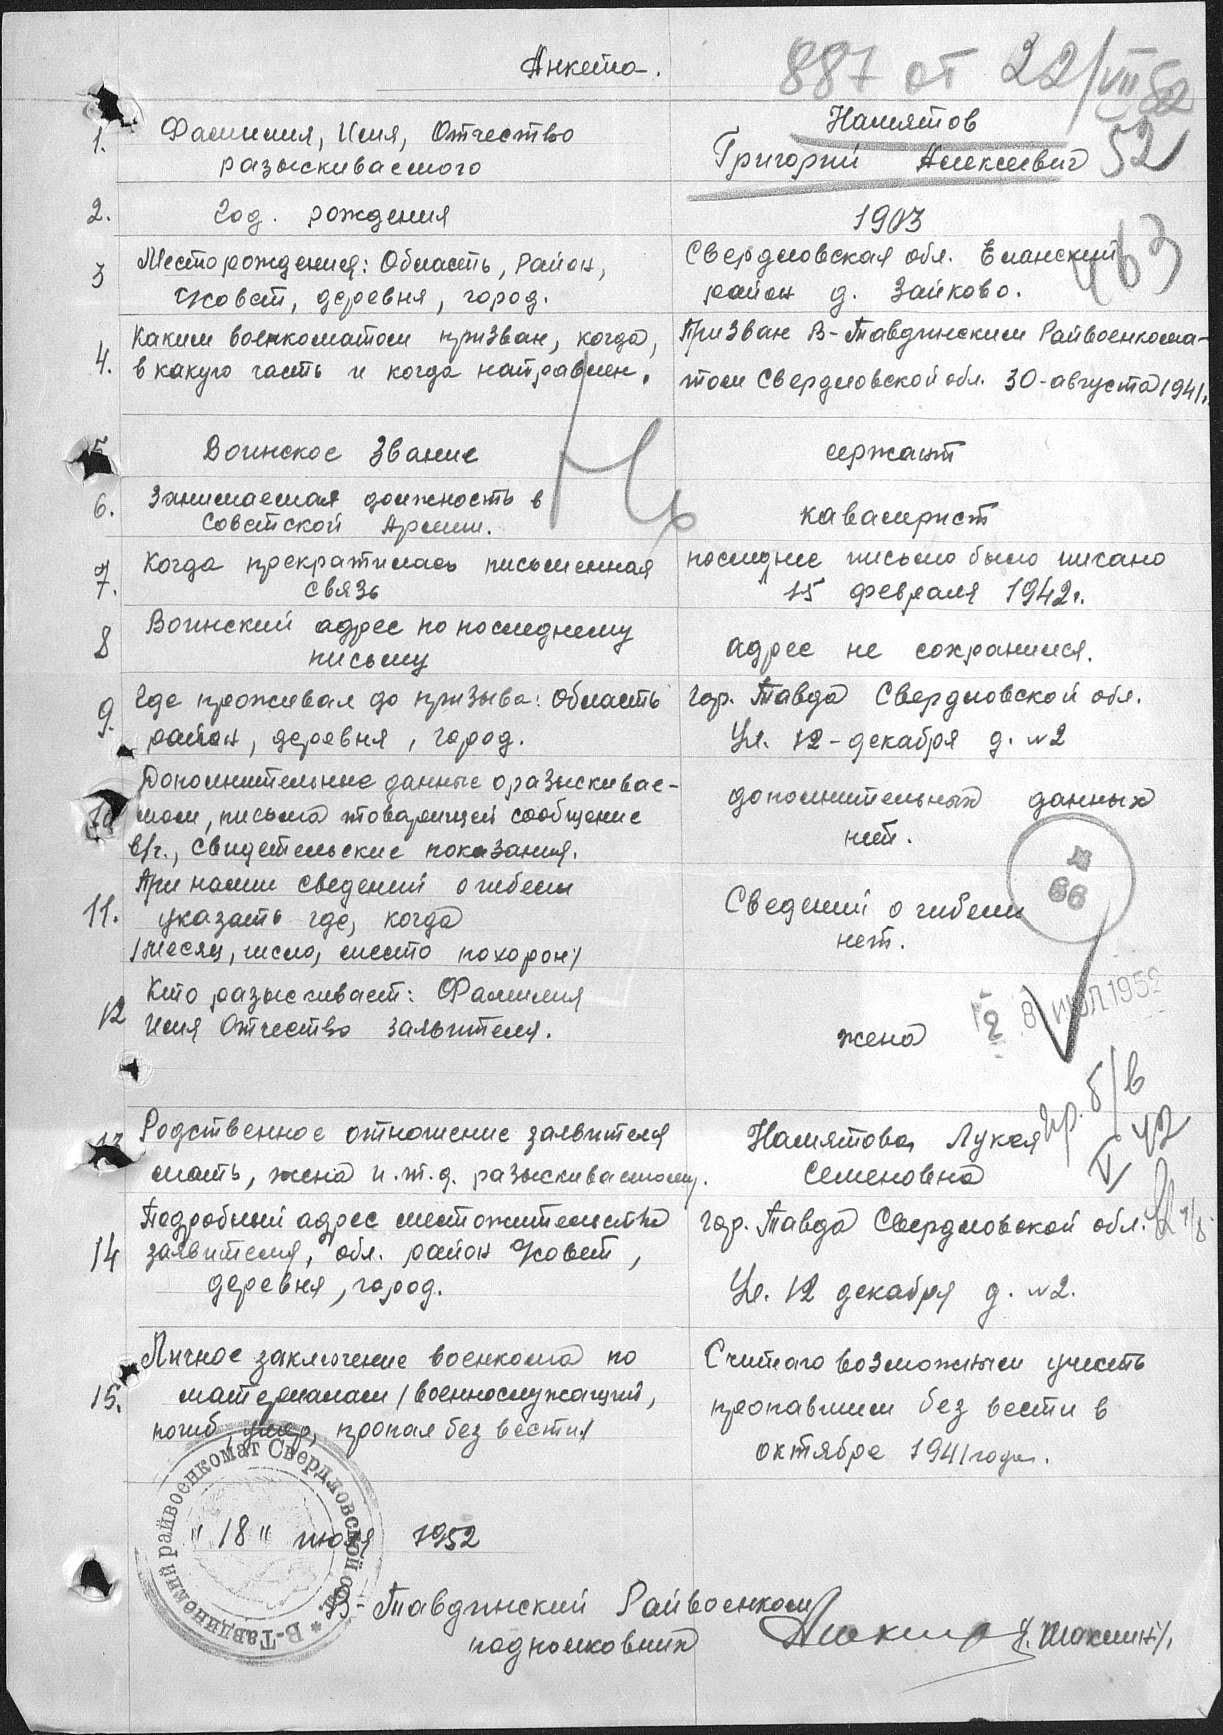 Анкета.
887 от 22/VII 52
52
1. Фамилия, Имя, Отчество
разыскиваемого
Намятов
Григорий Алексеевич
2. Год рождения
1903
463
3 Место рождения: Область, район,
с/совет, деревня, город.
Свердловская обл. Еланский
район д. Зайково.
4. Каким военкоматом призван, когда,
в какую часть и когда направлен.
Призван В-Тавдинским Райвоенкома-
том Свердловской обл. 30-августа 1941г.
5 Воинское звание
сержант
6. Занимаемая должность в
Советской Армии.
кавалерист
7. Когда прекратилась письменная
связь
последнее письмо было писано
15 февраля 1942г.
8 Воинский адрес по последнему
письму
адрес не сохранился.
9. Где проживал до призыва: Область
район, деревня, город.
гор. Тавда Свердловской обл.
Ул. 12-декабря д. №2
10 Дополнительные данные о разыскивае-
мом, письма товарищей сообщение
в/ч., свидетельские показания.
дополнительных данных
нет.
66
11. При налии сведений о гибели
указать где, когда
/месяц, число, место похорон/
Сведений о гибели
нет.
12 Кто разыскивает: Фамилия
Имя Отчество заявителя.
жена
28 ИЮЛ 1952
13 Родственное отношение заявителя
мать, жена и.т.д. разыскиваемому.
Намятова Лукея
Семеновна
пр. б/в
V 42
14 Подробный адрес местожительства
заявителя, обл. район с/совет,
деревня, город.
гор. Тавда Свердловской обл.
Ул. 12 декабря д. №2.
15. Личное заключение военкома по
материалам /военнослужащий,
погиб, умер, пропал без вести/
Считаю возможным учесть
пропавшим без вести в
октябре 1941 года.
"18" июля 1952
В-Тавдинский Райвоенком
подполковник
В-Тавдинский райвоенкомат Свердловской обл.